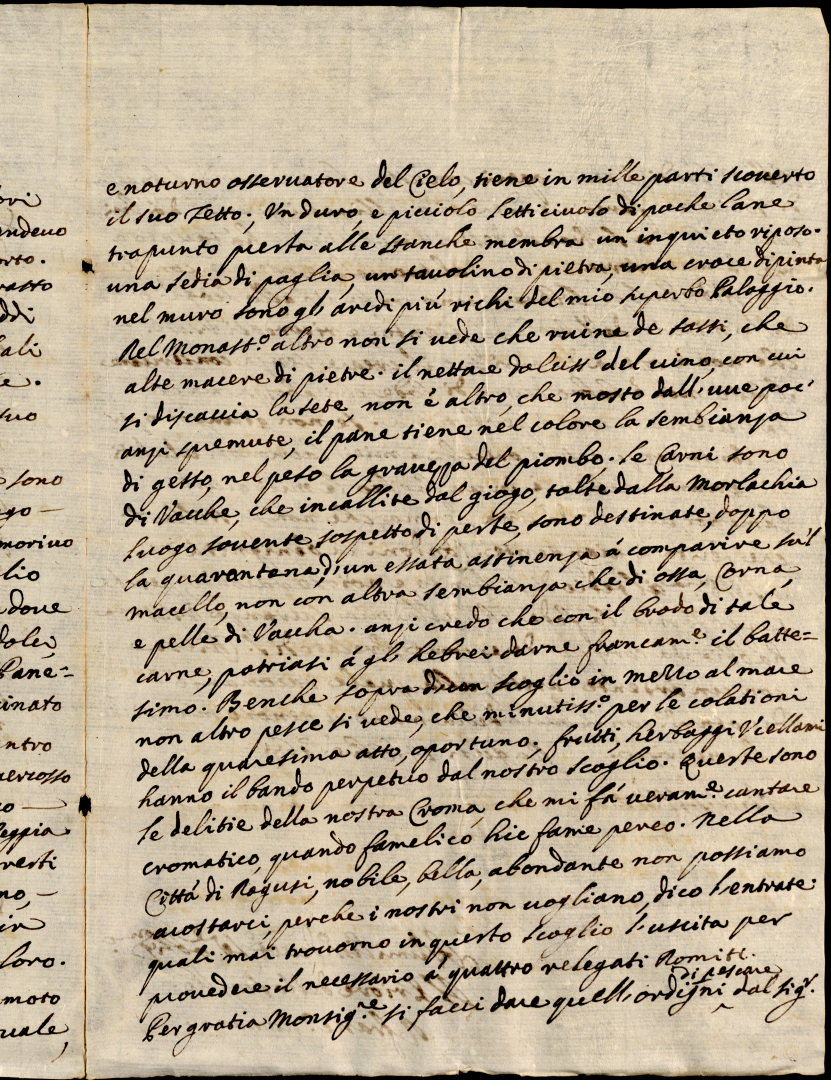 ori
andeuo
orto.
rasto
ddi
ali
e.
suo
sono
ego –
moriuo
lio
dove
dole,
Pane=
cinato
entro
percosso
o –
Reggia
uerti
no, –
ir
loro.
moto
uale,
e noturno osseruatore del Cielo, tiene in mille parti scouerto
il suo Tetto; Vn duro, e picciolo letticiuolo di poche lane
trapunto presta alle stanche membra un inquieto riposo.
una sedia di paglia, un tauolino di pietra, una croce dipinta
nel muro sono gli aredi più richi del mio superbo Palaggio.
Nel Monast.º altro non si uede che ruine de sassi, che
alte macere di pietre. il nettare dolciss.º del uino, con cui
si discaccia la sete, non é altro, che mosto dall'uue poc'
anzi spremute, il pane tiene nel colore la sembianza
di gesso, nel peso la grauezza del piombo. le Carni sono
di Vacche, che incallite dal giogo, tolte dalla Morlachia
luogo souente sospetto di peste, sono destinate, doppo
la quarantena d'un essata astinenza á comparire sú'l
macello, non con altra sembianza che di ossa, Corna,
e pelle di Vaccha. anzi credo che con il brodo di tale
carne, potriasi á gli hebrei darne francam.e il batte=
simo. Benche sopra d'un scoglio in mezzo al mare
non altro pesce si uede, che minutiss.º per le colationi
della quaresima atto, oportuno; frutti, herbaggi Vcellami
hanno il bando perpetuo dal nostro scoglio. Queste sono
le delitie della nostra Croma, che mi fá ueram.e cantare
cromatico, quando famelico hic fame pereo. Nella
Cittá di Ragusi, nobile, bella, abondante non possiamo
acostarci, perche i nostri non uogliano, dico l'entrate
quali mai trouorno in questo scoglio l'uscita per
prouedere il necessario á quattro relegati Romiti.
di pescare
Per gratia Monsig.re si facci dare quell'ordigni dal sig.r